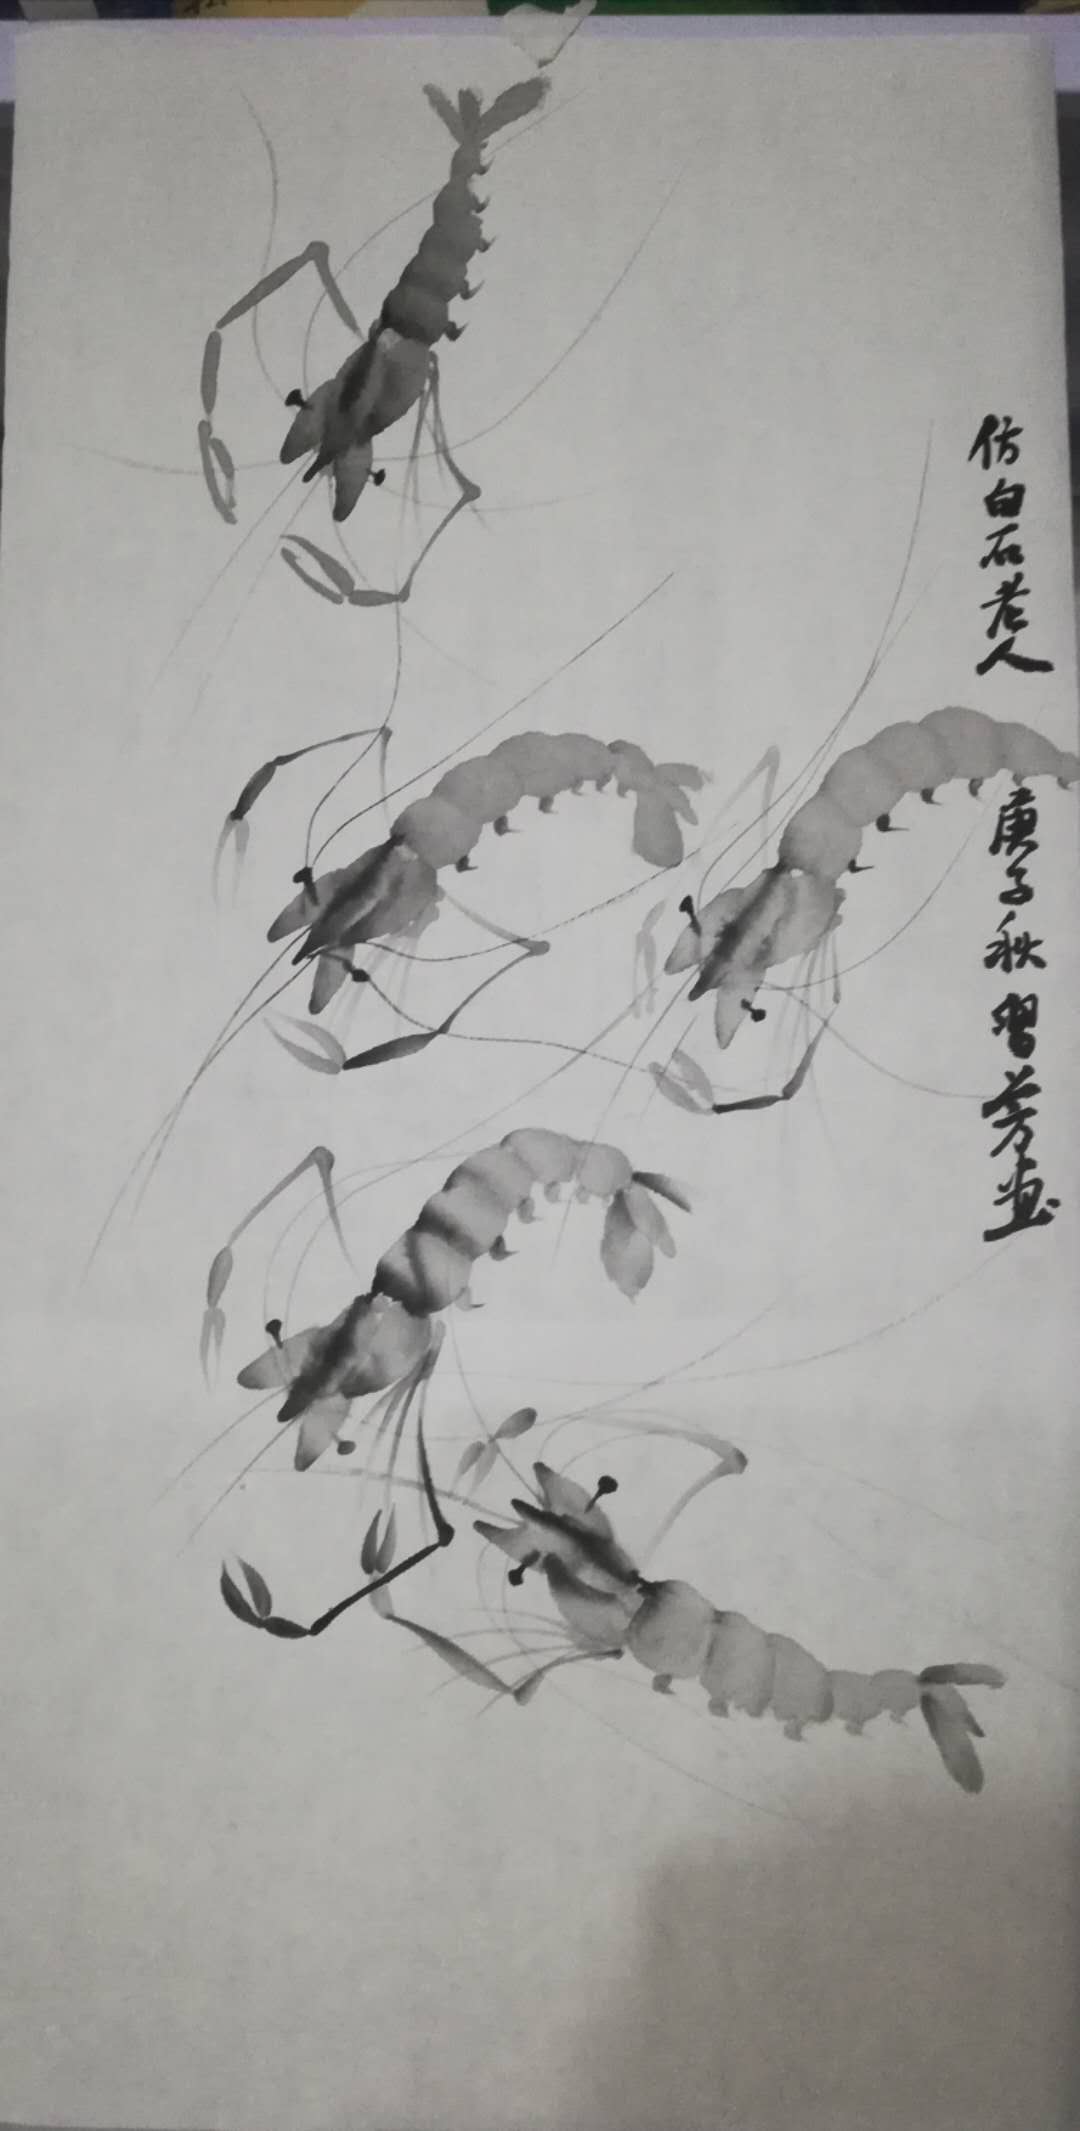 仿白石老人
庚子秋習芳画